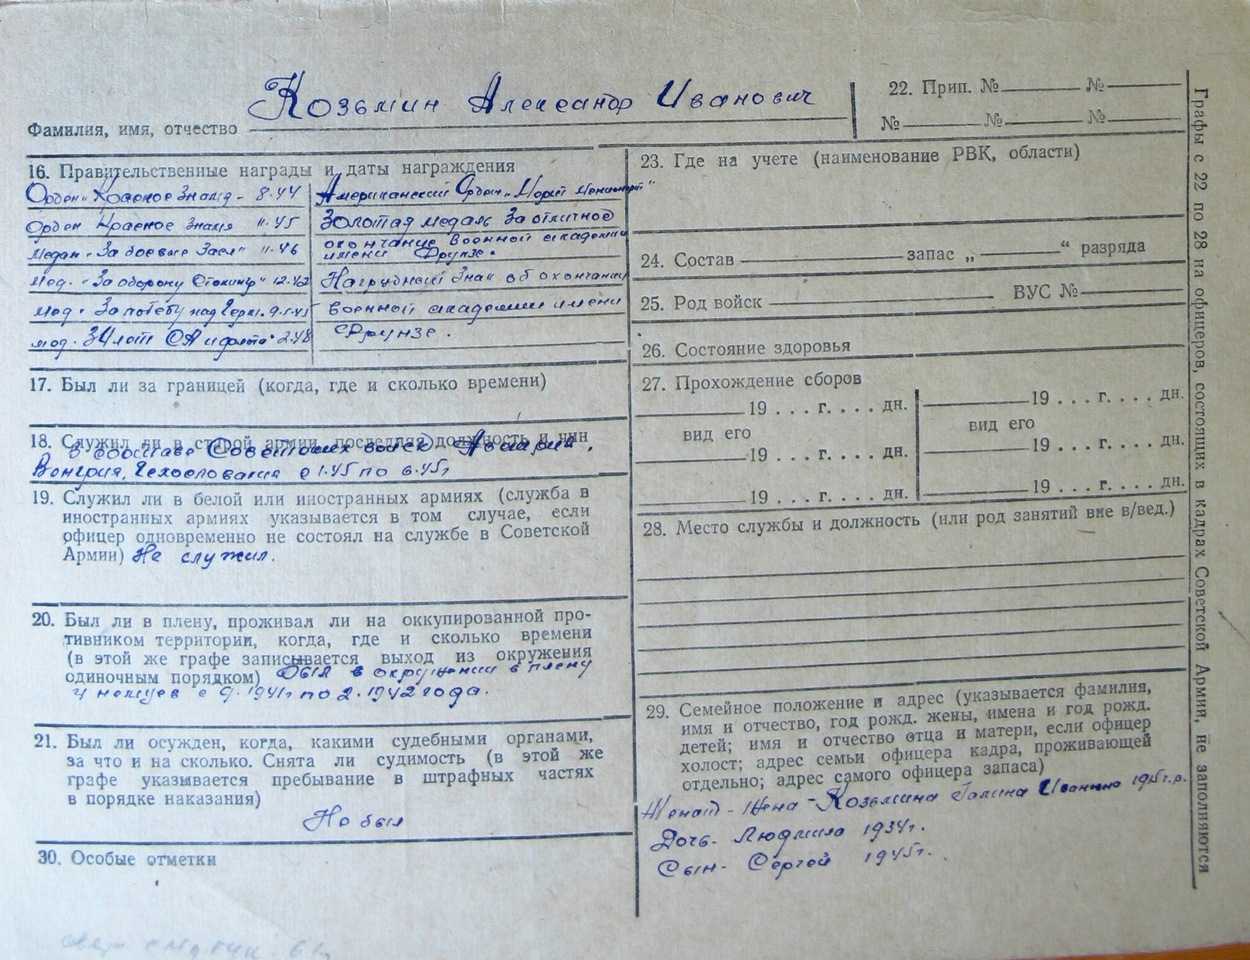 Козьмин Александр Иванович
Фамилия, имя, отчество
22. Прип. № №
№ № №
16. Правительственные награды и даты награждения
Орден "Красное Знамя - 8.44
Орден Красное Знамя 11.45
Медаль "За боевые Засл" 11.46
Мед. "За оборону Сталингр" 12.42
мед. За победу над Герм. 9.5.45
мед. ЗОлет СА и флота" 2.48
Американский Орден "
Золотая медаль За отличное
окончание Военной академии
имени Фрунзе.
Нагрудный Знак об окончании
военной академии имени
Фрунзе.
17. Был ли за границей (когда, где и сколько времени)
18. Служил ли в старой армии, последняя должность и чин
в составе Советских войск Австрия,
Венгрия, Чехословакия с 1.45 по 6.45г
19. Служил ли в белой или иностранных армиях (служба в
иностранных армиях указывается в том случае, если
офицер одновременно не состоял на службе в Советской
Армии) Не служил.
20. Был ли в плену, проживал ли на оккупированной про-
тивником территории, когда, где и сколько времени
(в этой же графе записывается выход из окружения
одиночным порядком) Был в окружении в плену
у немцев с 9.1941г по 2.1942 года.
21. Был ли осужден, когда, какими судебными органами,
за что и на сколько. Снята ли судимость (в этой же
графе указывается пребывание в штрафных частях
в порядке наказания)
Не был
30. Особые отметки
23. Где на учете (наименование РВК, области)
24. Состав запас „ “ разряда
25. Род войск ВУС №
26. Состояние здоровья
27. Прохождение сборов
19 . . . г. . . . дн. 19 . . . г. . . . дн.
вид его вид его
19 . . . г. . . . дн. 19 . . . г. . . . дн.
19 . . . г. . . . дн. 19 . . . г. . . . дн.
28. Место службы и должность (или род занятий вне в/вед.)
29. Семейное положение и адрес (указывается фамилия,
имя и отчество, год рожд. жены, имена и год рожд.
детей; имя и отчество отца и матери, если офицер
холост; адрес семьи офицера кадра, проживающей
отдельно; адрес самого офицера запаса)
Женат - Жена - Козьмина Галина Ивановна г.р.
Дочь - Людмила 1934г.
Сын - Сергей 1945г.
Графы с 22 по 28 на офицеров, состоящих в кадрах Советской Армии, не заполняются